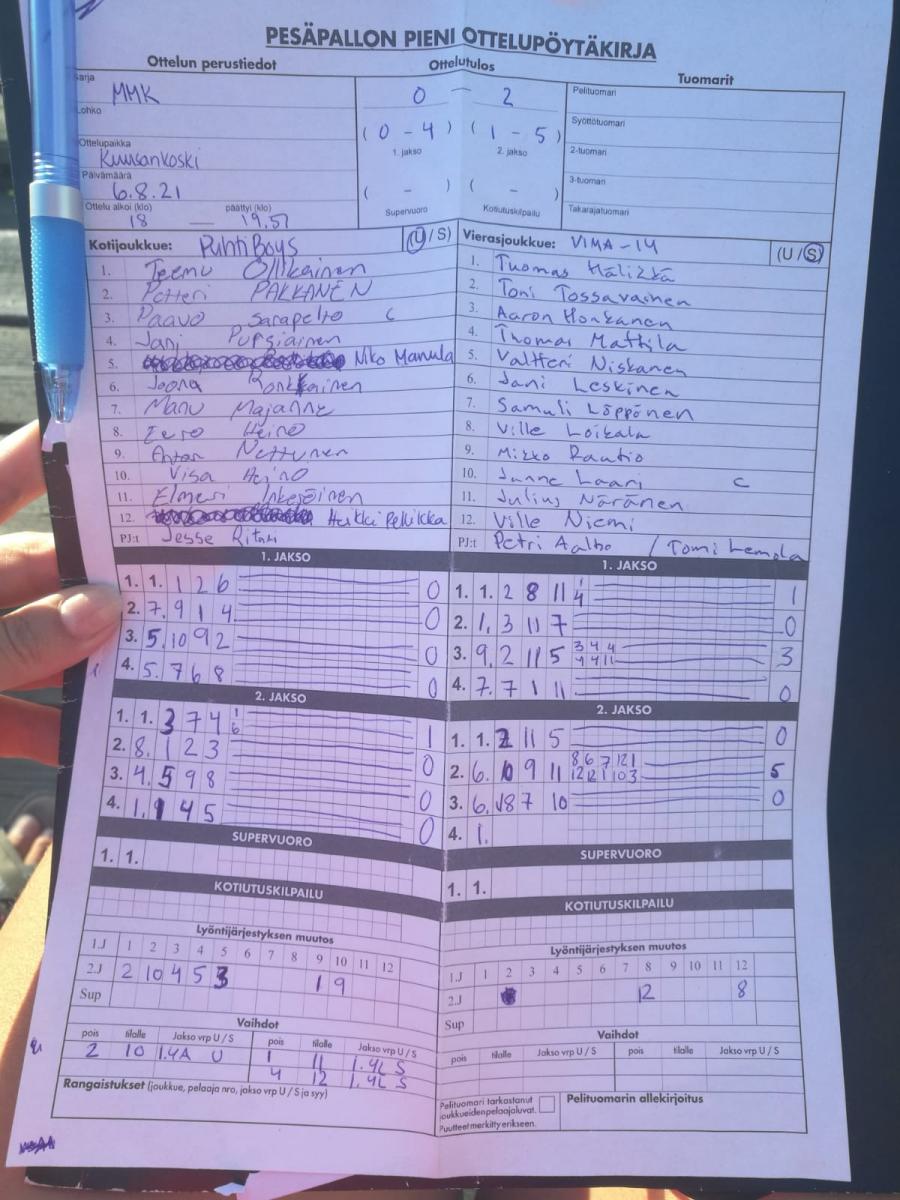 PESÄPALLON PIENI OTTELUPÖYTÄKIRJA
Ottelun perustiedot
Ottelutulos
Tuomarit
Sarja
MMK
Lohko
Ottelupaikka
Kuusankoski
Päivämäärä
6.8.21
Ottelu alkoi (klo) päättyi (klo)
18 — 19.57
0 — 2
(0 - 4) (1 - 5)
1. jakso 2. jakso
( - ) ( - )
Supervuoro Kotiutuskilpailu
Pelituomari
Syöttötuomari
2-tuomari
3-tuomari
Takarajatuomari
Kotijoukkue: Puhti Boys (U / S)
1. Teemu Ollikainen
2. Petteri PAKKANEN
3. Paavo Sarapelto C
4. Jani Pursiainen
5. Niko Mannula
6. Joona Ronkkainen
7. Manu Majanne
8. Eero Heino
9. Anton Nettunen
10. Visa Heino
11. Elmeri
12. Heikki Pellikka
PJ:t Jesse
Vierasjoukkue: VIMA-14 (U / S)
1. Tuomas Hälikkä
2. Toni Tossavainen
3. Aaron Honkanen
4. Thomas Mattila
5. Valtteri Niskanen
6. Jani Leskinen
7. Samuli Löppönen
8. Ville Loikala
9. Mikko Rautio
10. Janne Laari C
11. Julius Näränen
12. Ville Niemi
PJ:t Petri Aalto / Tomi Lemola
1. JAKSO
1. 1. 1 2 6 0
2. 7. 9 1 4 0
3. 5. 10 9 2 0
4. 5. 7 6 8 0
1. JAKSO
1. 1. 2 8 11 1 4 1
2. 1. 3 11 7 0
3. 9. 2 11 5 3 4 4 3
4 4 11
4. 7. 7 1 11 0
2. JAKSO
1. 1. 3 7 4 1 6 1
2. 8. 1 2 3 0
3. 4. 5 9 8 0
4. 1. 1 4 5 0
2. JAKSO
1. 1. 2 11 5 0
2. 6. 10 9 11 8 6 7 12 1 5
12 12 1 10 3
3. 6. 8 7 10 0
4. 1.
SUPERVUORO
1. 1.
SUPERVUORO
1. 1.
KOTIUTUSKILPAILU
KOTIUTUSKILPAILU
Lyöntijärjestyksen muutos
1.J 1 2 3 4 5 6 7 8 9 10 11 12
2.J 2 10 4 5 3 1 9
Sup
Lyöntijärjestyksen muutos
1.J 1 2 3 4 5 6 7 8 9 10 11 12
2.J 12 8
Sup
Vaihdot
pois tilalle Jakso vrp U / S pois tilalle Jakso vrp U / S
2 10 1.4A U 1 11 1.4L S
4 12 1.4L S
Vaihdot
pois tilalle Jakso vrp U / S pois tilalle Jakso vrp U / S
Rangaistukset (joukkue, pelaaja nro, jakso vrp U / S ja syy)
Pelituomari tarkastanut
joukkueiden pelaajaluvat.
Puutteet merkitty erikseen.
Pelituomarin allekirjoitus